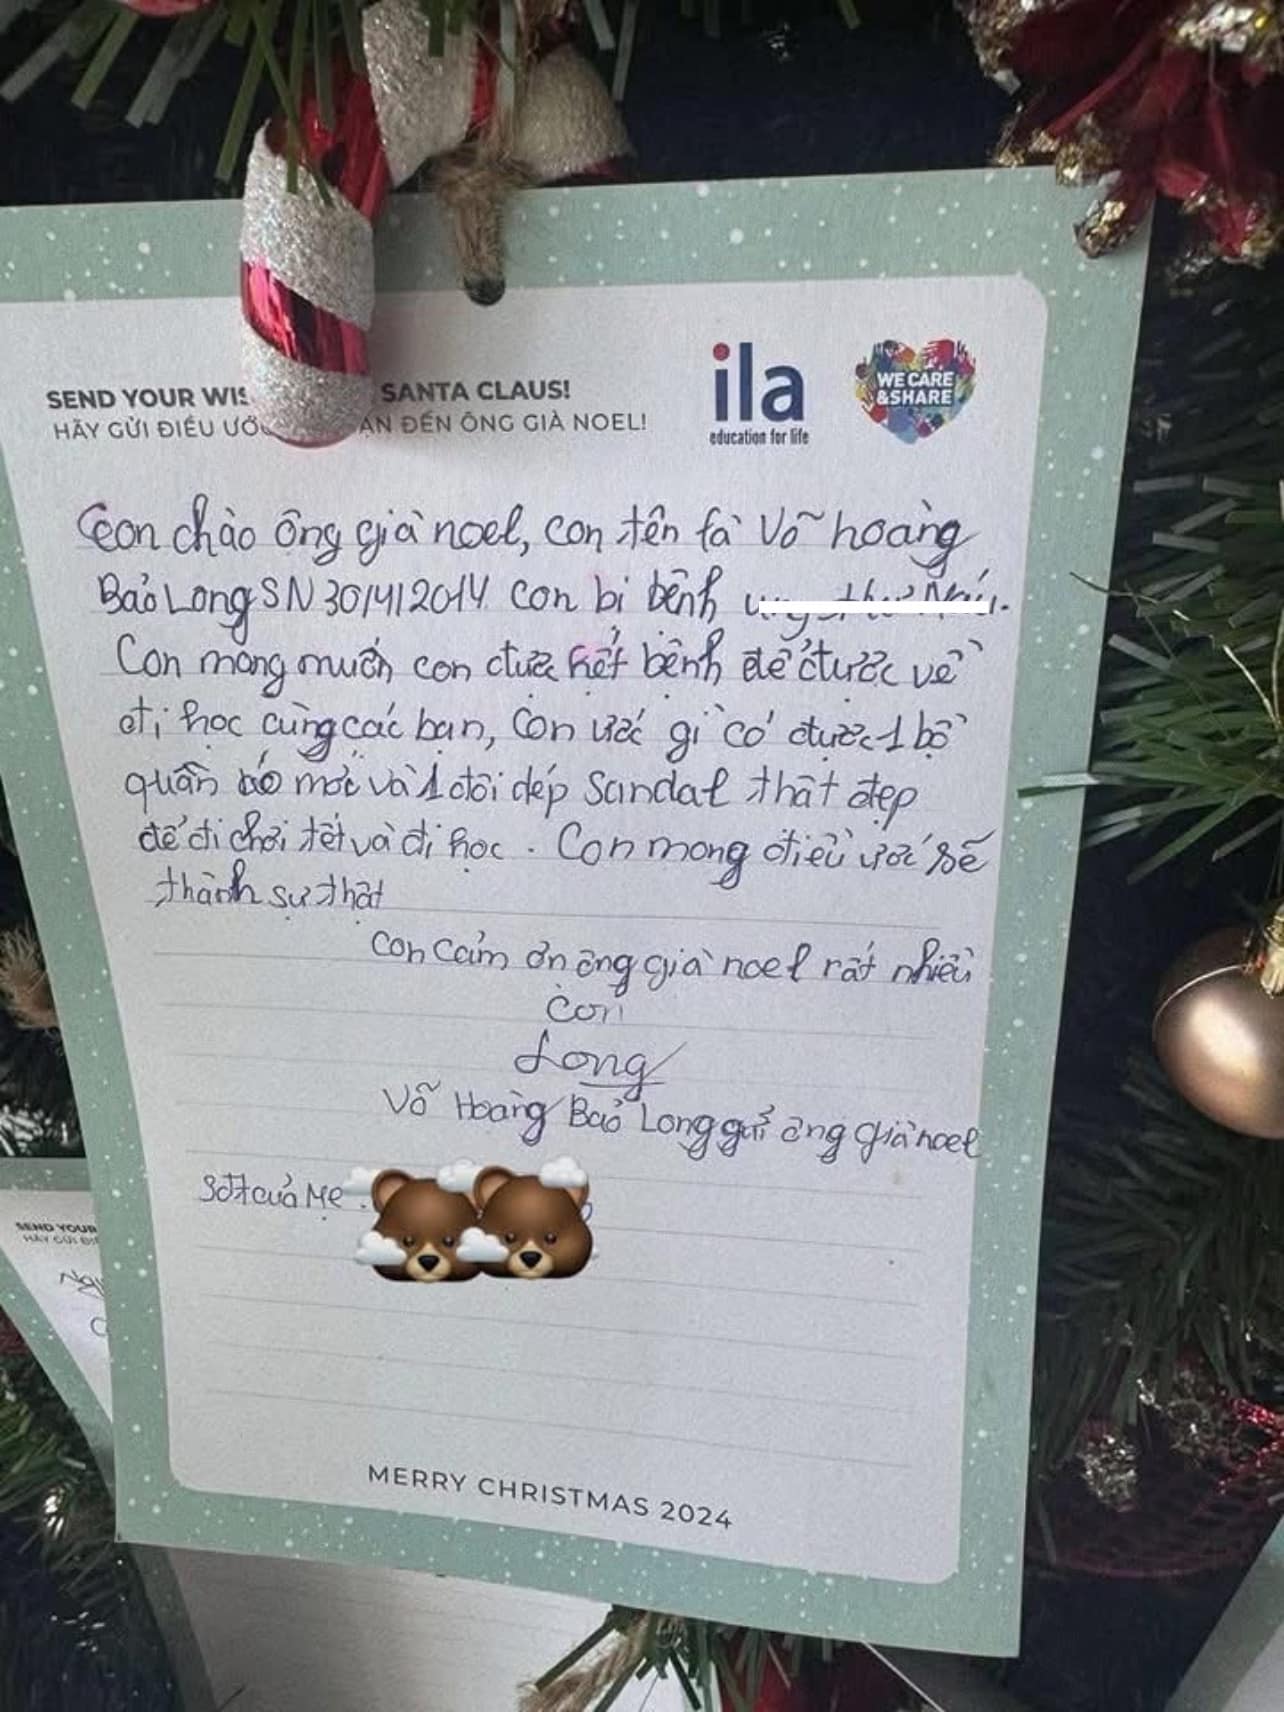 SEND YOUR WIS SANTA CLAUS!
HÃY GỬI ĐIỀU ƯỚ ẠN ĐẾN ÔNG GIÀ NOEL!
ila
education for life
WE CARE
&SHARE
Con chào ông già noel, con tên là Võ hoàng
Bảo Long SN 30/4/2014 con bị bệnh
Con mong muốn con được hết bệnh để được về
đi học cùng các bạn, con ước gì có được 1 bộ
quần áo mới và 1 đôi dép Sandal thật đẹp
để đi chơi tết và đi học. Con mong điều ước sẽ
thành sự thật
con cảm ơn ông già noel rất nhiều
Con
Long
Võ Hoàng Bảo Long gửi ông già noel
Sđt của Mẹ
MERRY CHRISTMAS 2024
SEND YOUR
HÃY GỬI ĐI